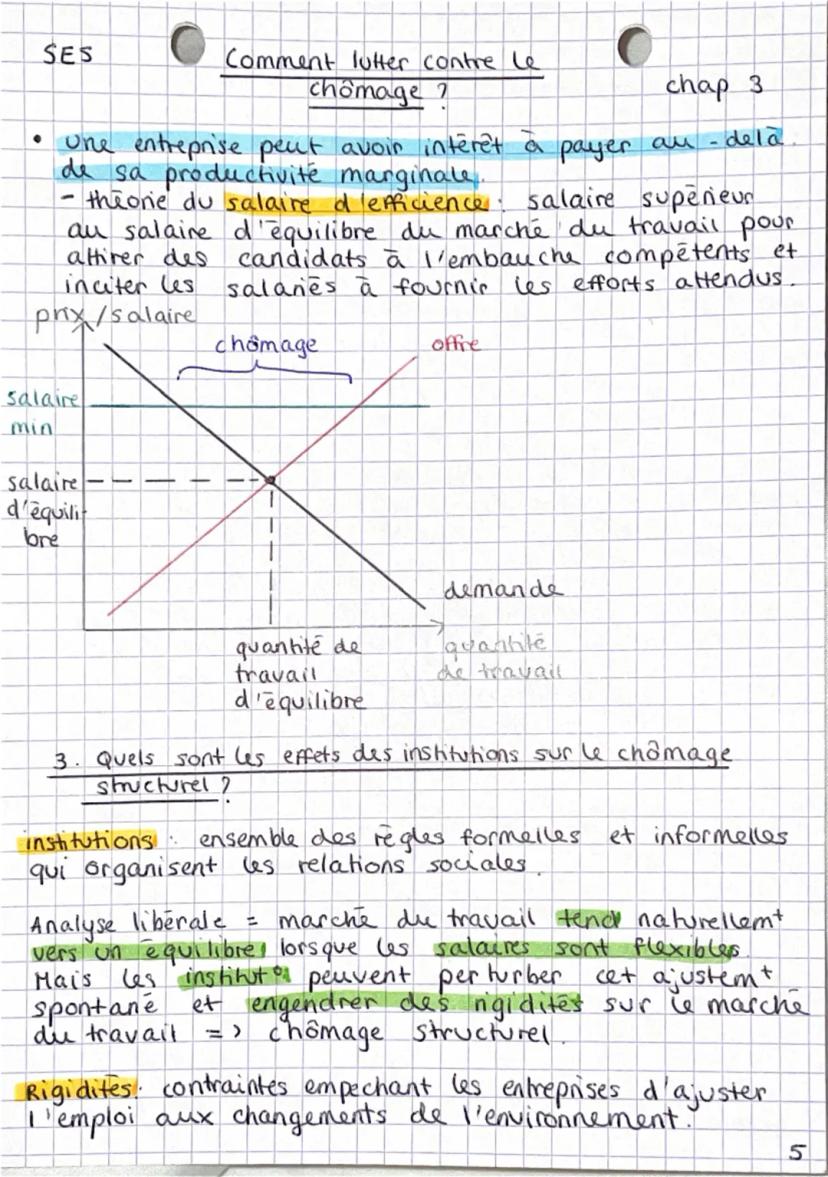 SES
Comment lutter contre le
chômage ?
chap 3
• une entreprise peut avoir intérêt à payer au-delà
de sa productivité marginale.
- théorie du salaire d'efficience : salaire supérieur
au salaire d'équilibre du marché du travail pour
attirer des candidats à l'embauche compétents et
inciter les salariés à fournir les efforts attendus.
prix/salaire
chômage
offre
salaire
min
salaire
d'équili
bre
demande
quantité de
travail
d'équilibre
quantité
de travail
3. Quels sont les effets des institutions sur le chômage
structurel ?
institutions : ensemble des règles formelles et informelles
qui organisent les relations sociales.
Analyse libérale = marché du travail tend naturellemt
vers un équilibre lorsque les salaires sont flexibles.
Mais les institut° peuvent perturber cet ajustemt
spontané et engendrer des rigidités sur le marché
du travail => chômage structurel.
Rigidités : contraintes empechant les entreprises d'ajuster
l'emploi aux changements de l'environnement.
5